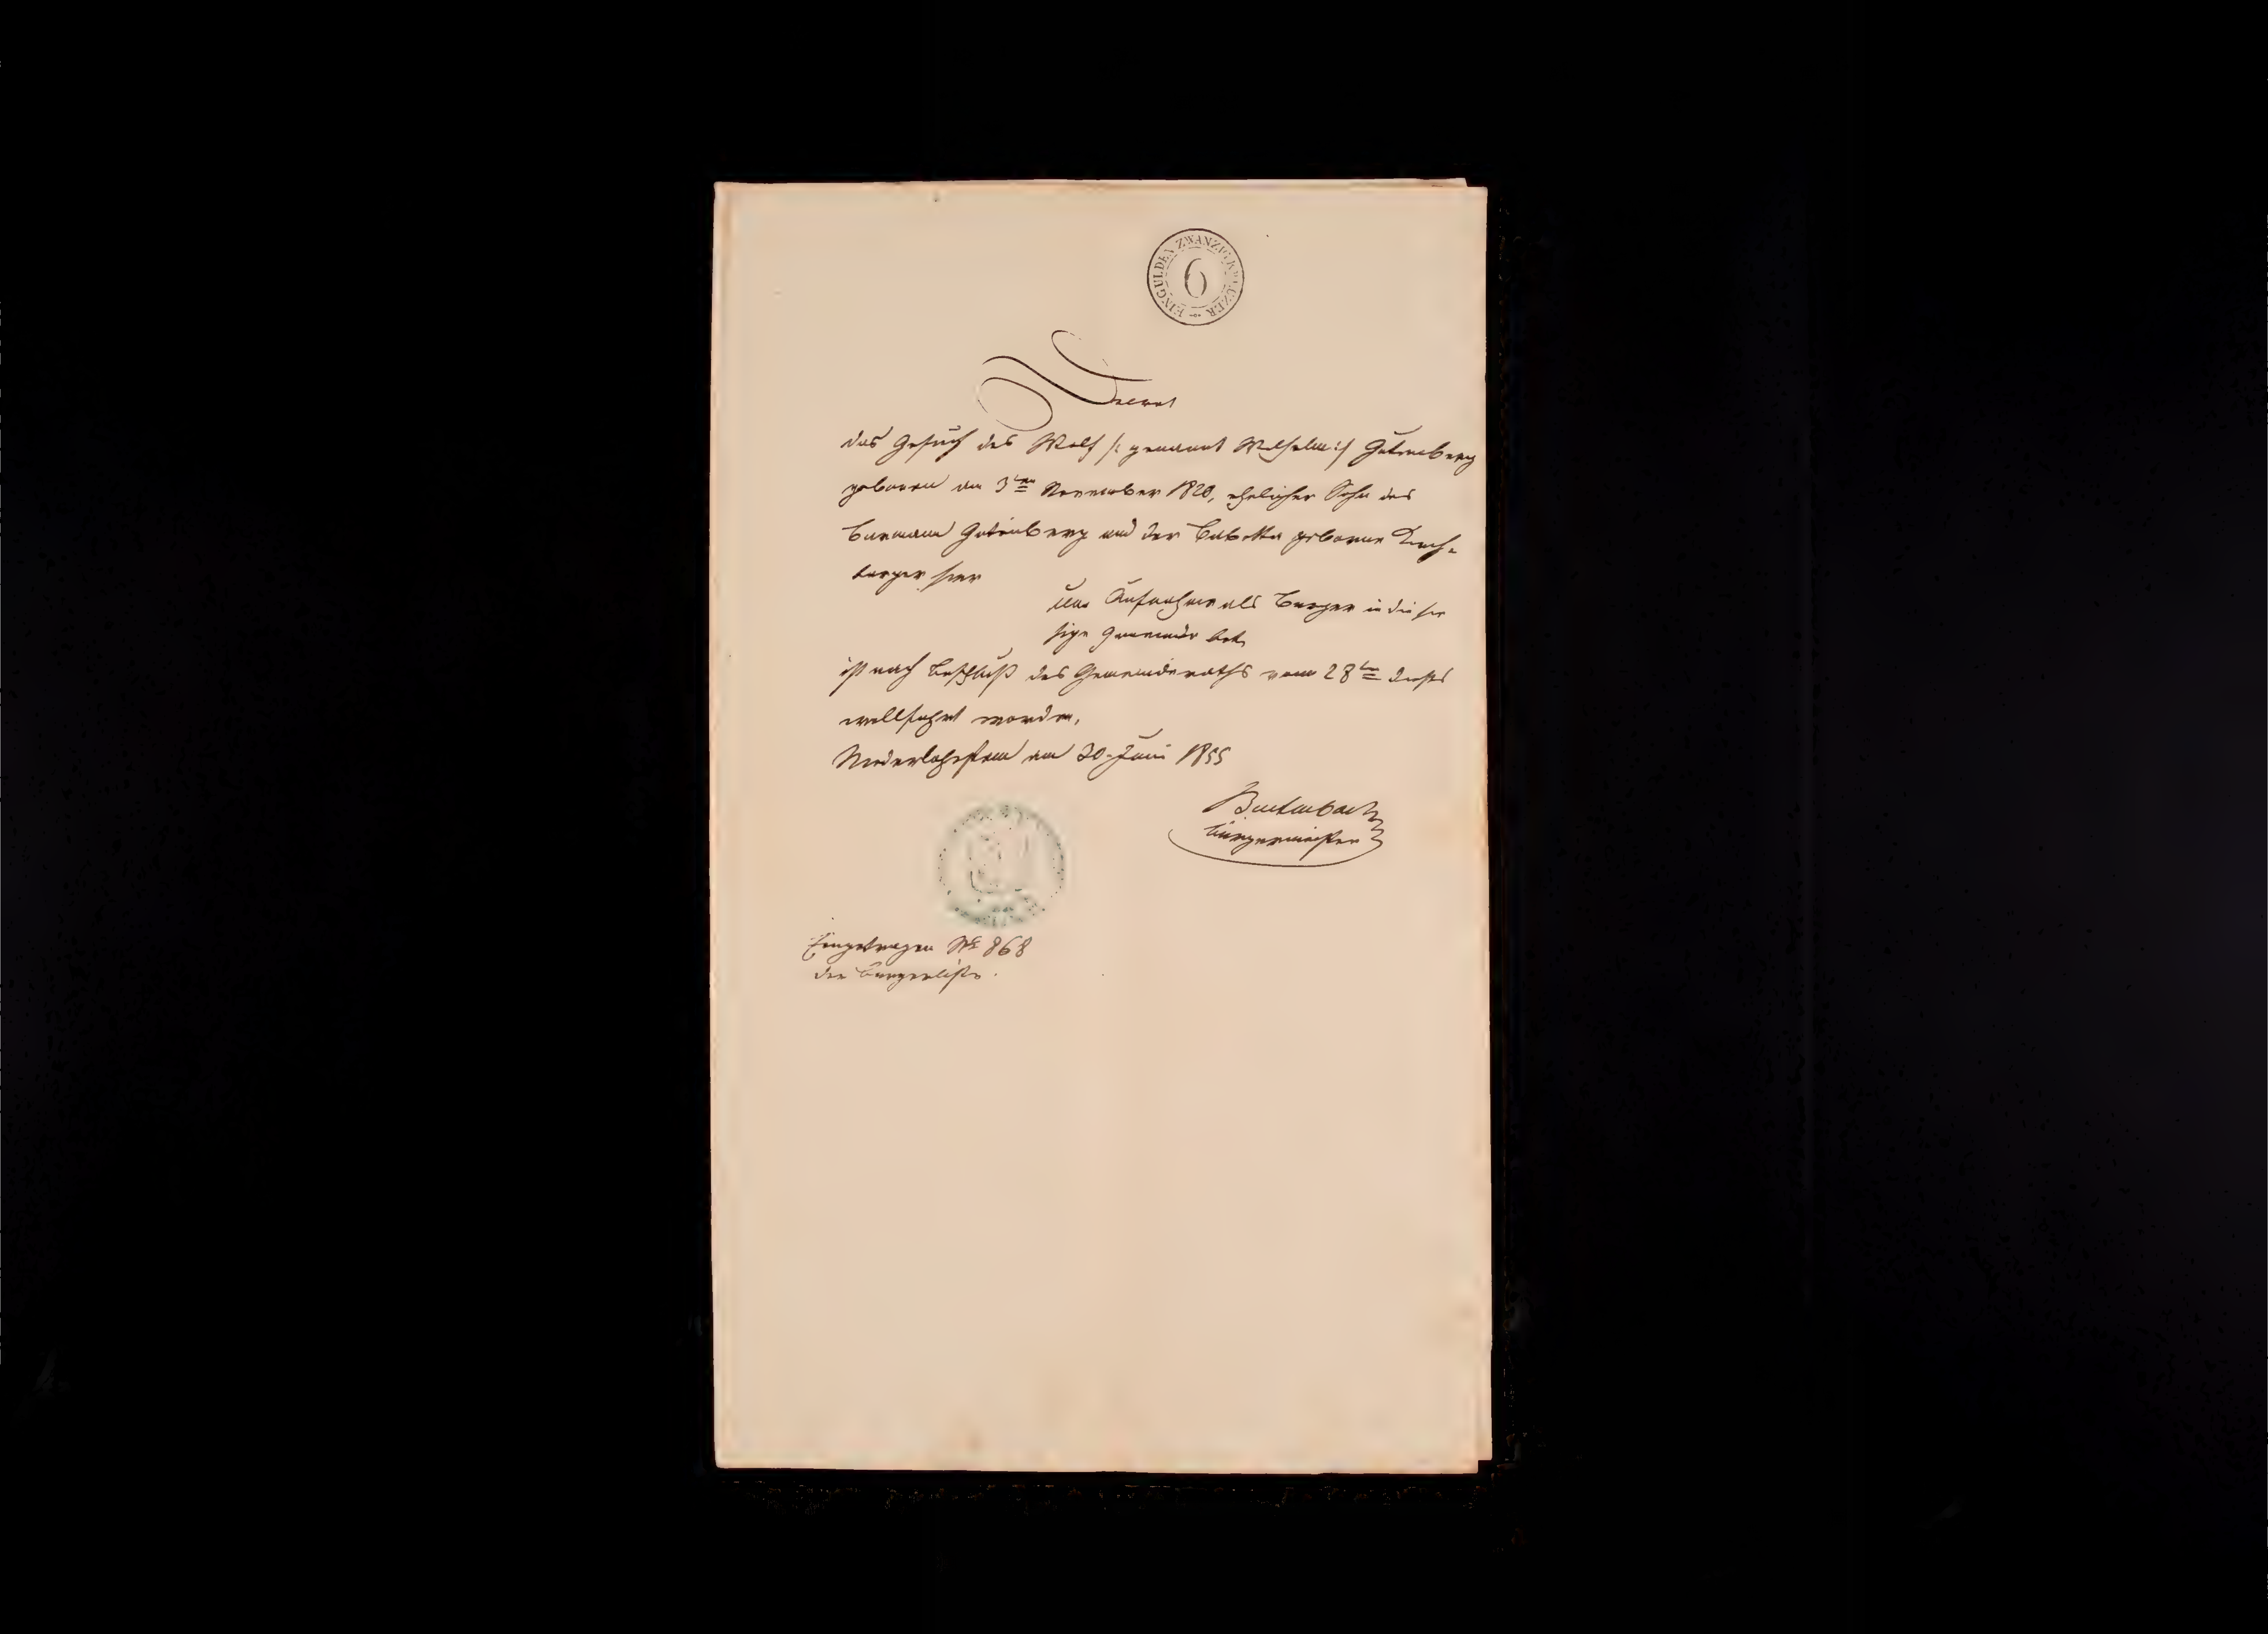 EIN GULDEN ZWANZIG KREUZER
6
Decret
das Gesuch des Wolf /: genannt Wilhelm :/ Gutenberg
geboren am 3ten November 1820, ehelicher Sohn des
Barmann Gutenberg und der Babetta geborene
burger hier
um Aufnahme als Burger in die hie
sige Gemeinde betr.
ist nach Beschluß des Gemeinderaths vom 28ten dieses
willfahrt worden.
Niederlahnstein am 30. Juni 1855
Bürgermeister
Eingetragen No 868
der Burgerliste.